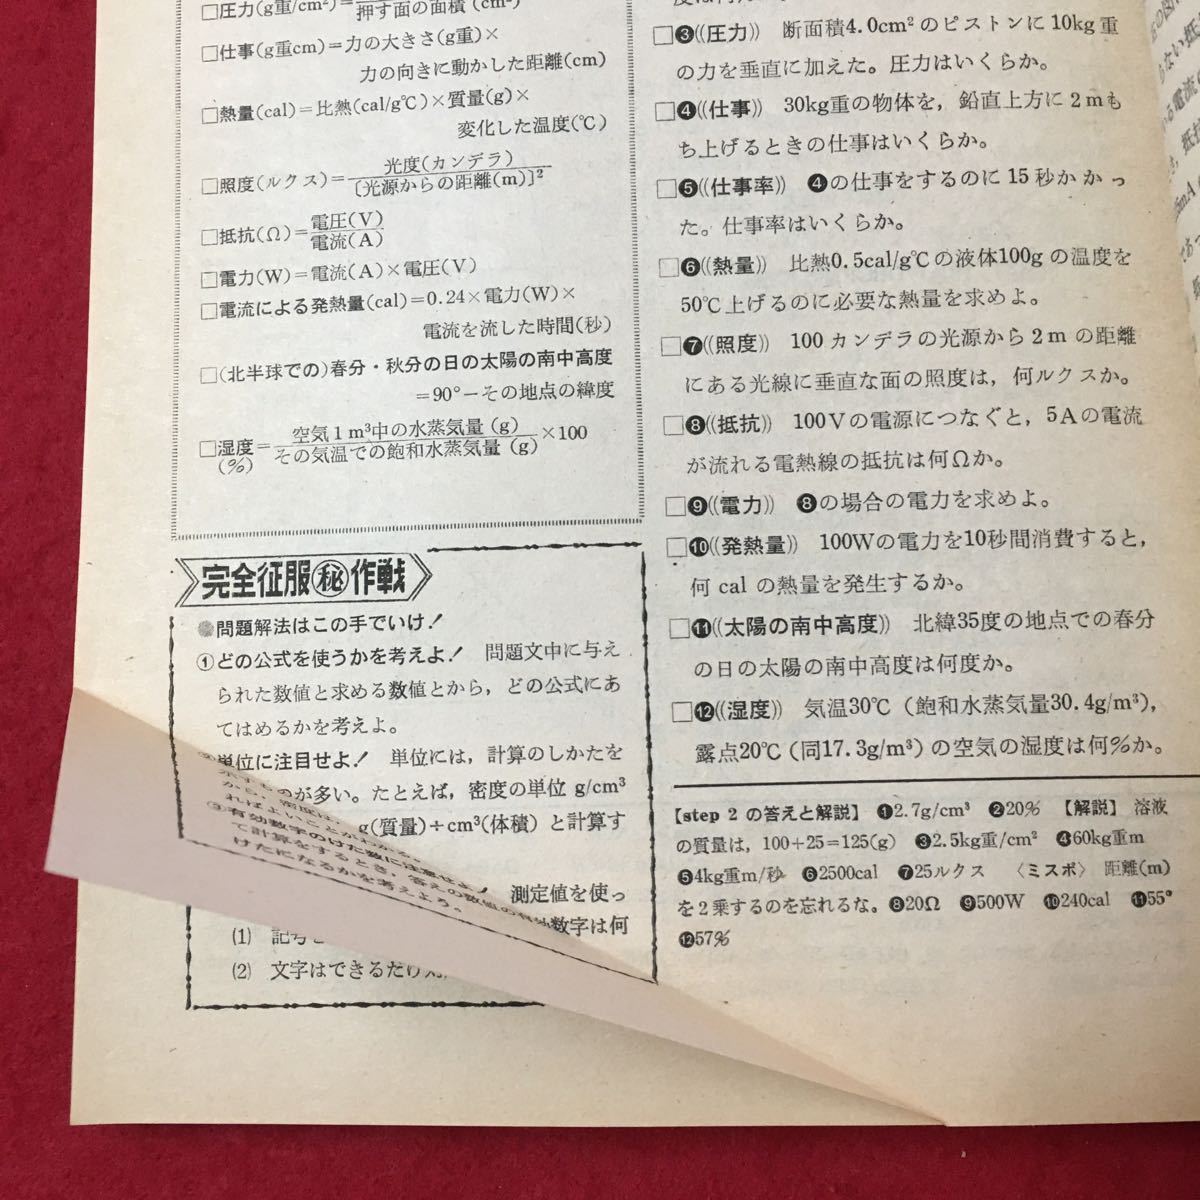 □圧力(g重/cm²)=
押す面の面積(cm²)
□仕事(g重cm)=力の大きさ(g重)×
力の向きに動かした距離(cm)
□熱量(cal)=比熱(cal/g℃)×質量(g)×
変化した温度(℃)
□照度(ルクス)=光度(カンデラ)
〔光源からの距離(m)〕²
□抵抗(Ω)=電圧(V)
電流(A)
□電力(W)=電流(A)×電圧(V)
□電流による発熱量(cal)=0.24×電力(W)×
電流を流した時間(秒)
□(北半球での)春分・秋分の日の太陽の南中高度
=90°−その地点の緯度
□湿度(%)=空気1m³中の水蒸気量(g)
その気温での飽和水蒸気量(g)×100
完全征服㊙作戦
●問題解法はこの手でいけ!
①どの公式を使うかを考えよ! 問題文中に与え
られた数値と求める数値とから，どの公式にあ
てはめるかを考えよ。
単位に注目せよ! 単位には，計算のしかたを
が多い。たとえば，密度の単位 g/cm³
g(質量)÷cm³(体積) と計算す
から，密度は，
ればよいことがわかる。
③有効数字のけた数に注意せよ!
測定値を使っ
て計算をするとき，答えの数値の有効数字は何
けたになるかを考えよう。
(1) 記号
(2) 文字はできるだけ
□❸((圧力)) 断面積4.0cm²のピストンに10kg重
の力を垂直に加えた。圧力はいくらか。
□❹((仕事)) 30kg重の物体を，鉛直上方に2mも
ち上げるときの仕事はいくらか。
□❺((仕事率)) ❹の仕事をするのに15秒かかっ
た。仕事率はいくらか。
□❻((熱量)) 比熱0.5cal/g℃の液体100gの温度を
50℃上げるのに必要な熱量を求めよ。
□❼((照度)) 100カンデラの光源から2mの距離
にある光線に垂直な面の照度は，何ルクスか。
□❽((抵抗)) 100Vの電源につなぐと，5Aの電流
が流れる電熱線の抵抗は何Ωか。
□❾((電力)) ❽の場合の電力を求めよ。
□❿((発熱量)) 100Wの電力を10秒間消費すると，
何calの熱量を発生するか。
□⓫((太陽の南中高度)) 北緯35度の地点での春分
の日の太陽の南中高度は何度か。
□⓬((湿度)) 気温30℃(飽和水蒸気量30.4g/m³)，
露点20℃(同17.3g/m³)の空気の湿度は何%か。
【step 2 の答えと解説】 ❶2.7g/cm³ ❷20% 【解説】 溶液
の質量は，100+25=125(g) ❸2.5kg重/cm² ❹60kg重m
❺4kg重m/秒 ❻2500cal ❼25ルクス 〈ミスポ〉 距離(m)
を2乗するのを忘れるな。❽20Ω ❾500W ❿240cal ⓫55°
⓬57%